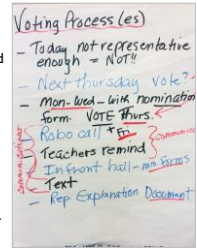 Voting Process(es)
- Today not representative
enough = NOT!!
- Next thursday vote?
- Mon-Wed - with nomination
form. VOTE Thurs.
Robo call + Fri
Teachers remind
In front hall - nom forms
Text
- Rep Explanation Document